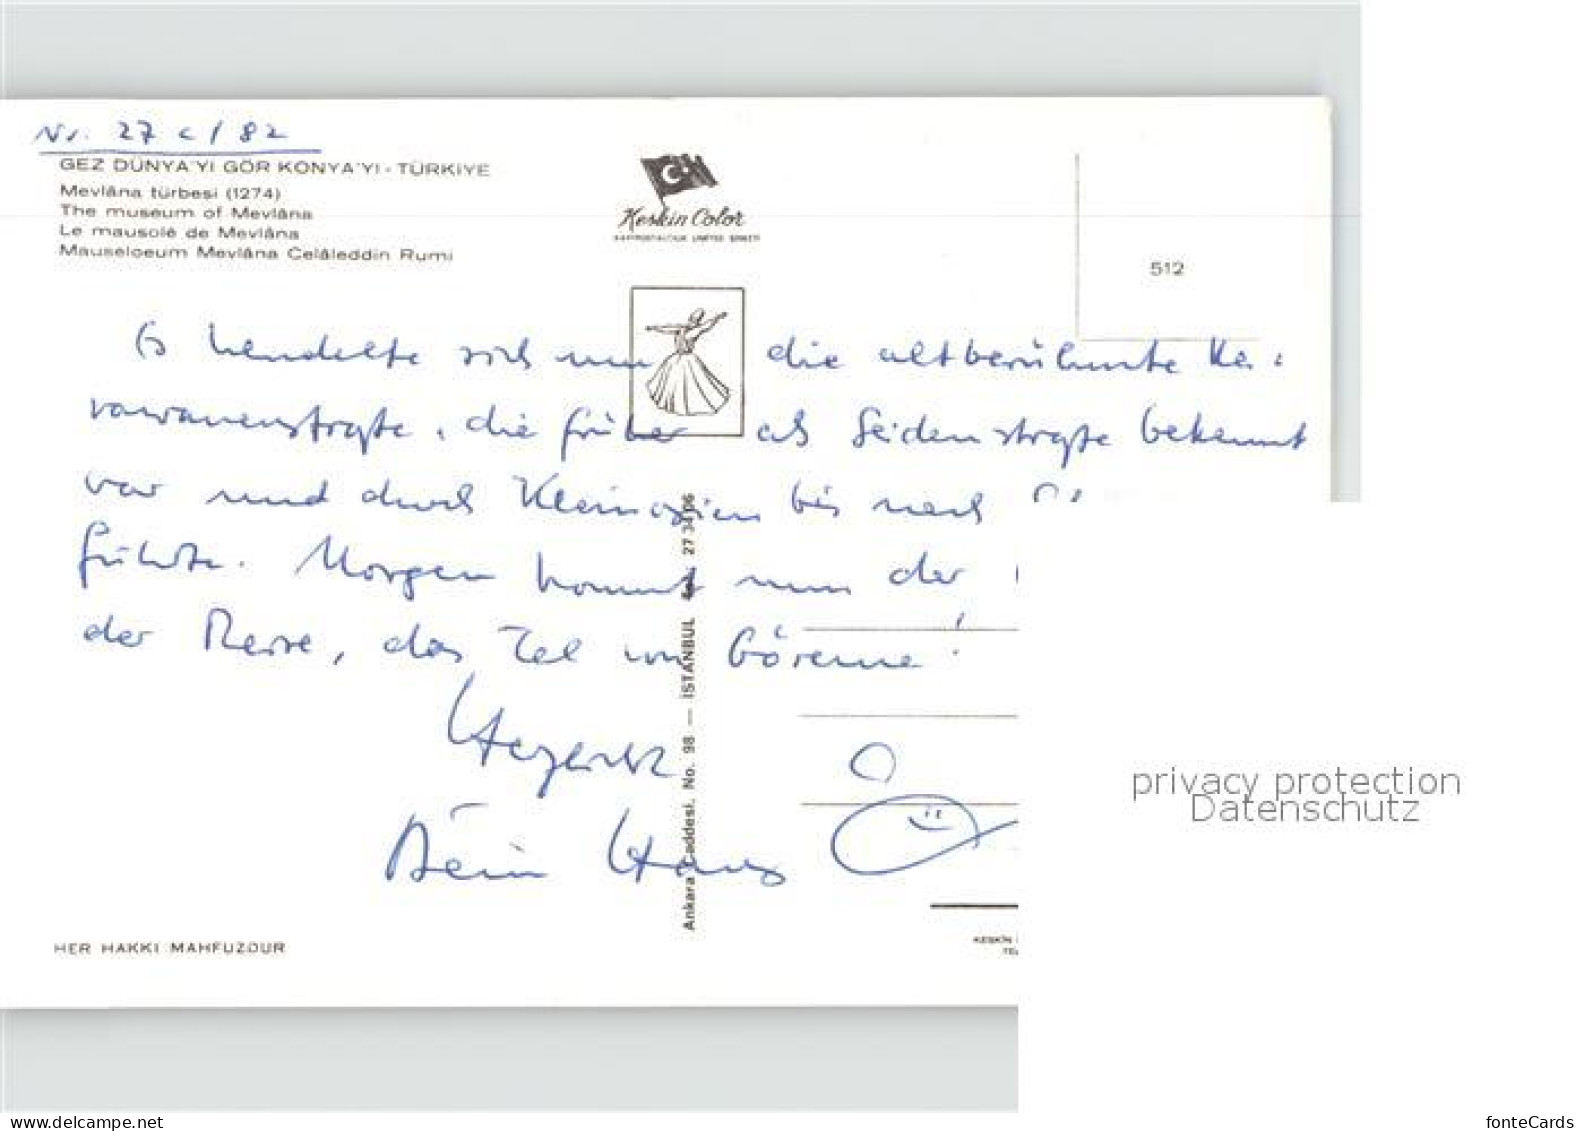 Nr. 27 c / 82
GEZ DÜNYA'YI GÖR KONYA'YI - TÜRKİYE
Mevlâna türbesi (1274)
The museum of Mevlâna
Le mausolé de Mevlâna
Mauseloeum Mevlâna Celâleddin Rumi
Keskin Color
KARTPOSTALCILIK LİMİTED ŞİRKETİ
512
Es handelte sich um die altberühmte Ka-
rawanenstraße, die früher als Seidenstraße bekannt
war und durch Kleinasien bis nach
führte. Morgen kommt nun der
der Reise, das Tal von Göreme!
Herzlich
Dein Hans
Ankara Caddesi, No. 98 — İSTANBUL 27 34 06
HER HAKKI MAHFUZDUR
KESKİN
privacy protection
Datenschutz
www.delcampe.net
fonteCards